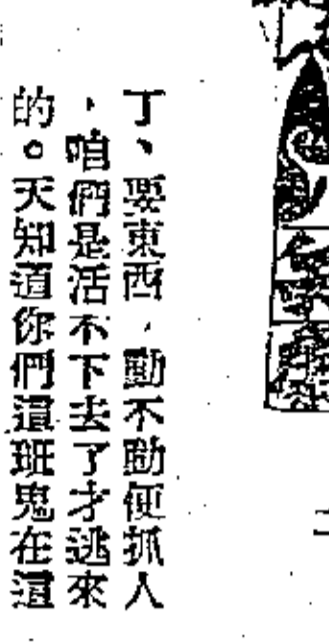 丁、要東西，動不動便抓人
，咱們是活不下去了才逃來
的。天知道你們這班鬼在這